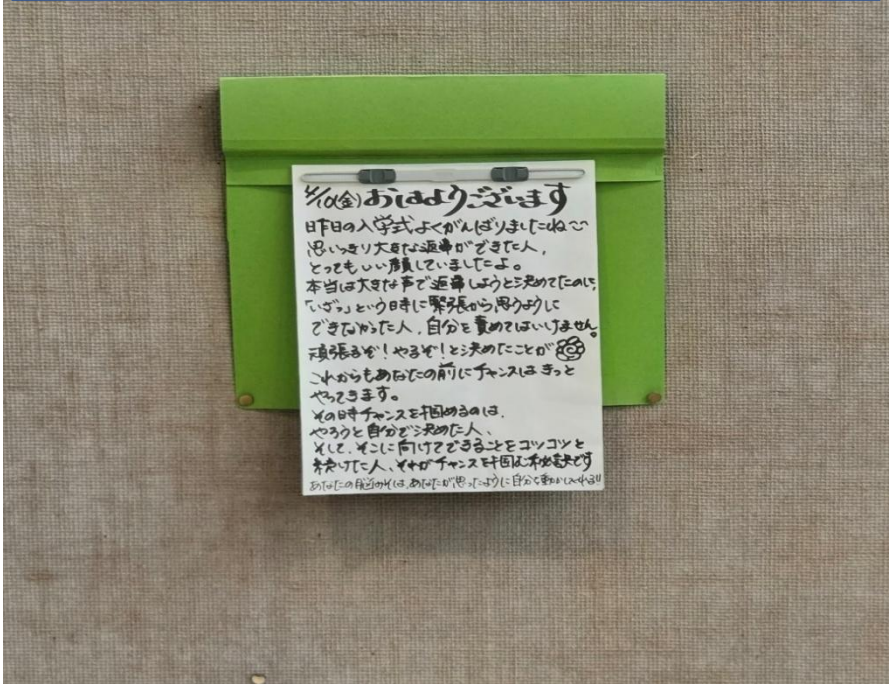 4/10(金)おはようございます
昨日の入学式よくがんばりましたね〜
思いっきり大きな返事ができた人、
とってもいい顔していましたよ。
本当は大きな声で返事しようと決めてたのに、
「いざっ」という時に緊張から思うように
できなかった人、自分を責めてはいけません。
頑張るぞ!やるぞ!と決めたことが
これからもあなたの前にチャンスはきっと
やってきます。
その時チャンスを掴めるのは、
やろうと自分で決めた人、
そして、そこに向けてできることをコツコツと
続けた人、それがチャンスを掴む秘訣です
あなたの脳みそは、あなたが思ったように自分を動かしてくれる!!